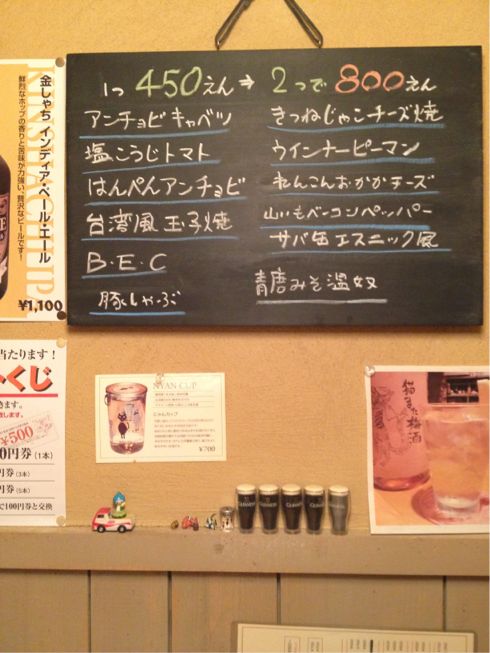 1つ 450えん⇒ 2つで 800えん
アンチョビキャベツ
塩こうじトマト
はんぺんアンチョビ
台湾風玉子焼
B・E・C
豚しゃぶ
きつねじゃこチーズ焼
ウインナーピーマン
れんこんおかかチーズ
山いもベーコンペッパー
サバ缶エスニック風
青唐みそ温奴
金しゃち インディア・ペール・エール
鮮烈なホップの香りと苦味が力強い、贅沢なビールです!
¥1,100
当たります!
くじ
きます。
¥500
0円券(1本)
円券(3本)
円券(5本)
で100円券と交換
NYAN CUP
にゃんカップ
¥700
猫また梅酒
GUINNESS
GUINNESS
GUINNESS
GUINNESS
GUINNESS